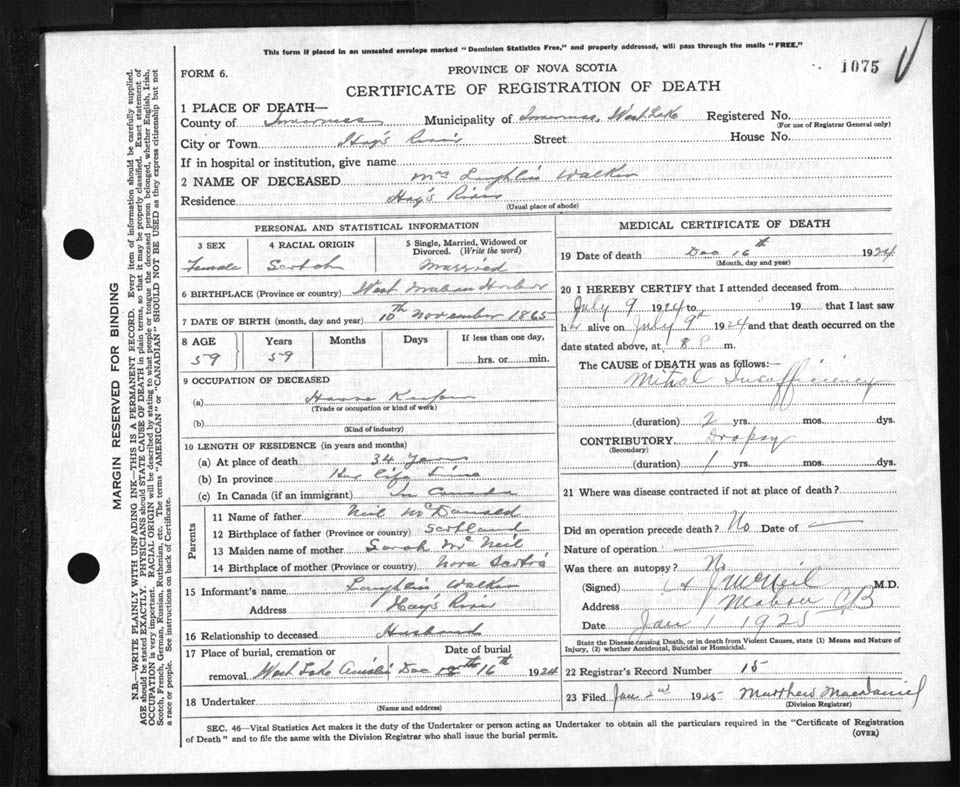 This form if placed in an unsealed envelope marked "Dominion Statistics Free," and properly addressed, will pass through the mails "FREE."
FORM 6.
PROVINCE OF NOVA SCOTIA
1075
CERTIFICATE OF REGISTRATION OF DEATH
1 PLACE OF DEATH—
County of Inverness Municipality of Inverness, West Lake Registered No.
(For use of Registrar General only)
City or Town Hay's River Street House No.
If in hospital or institution, give name
2 NAME OF DECEASED Mrs Laughlin Walker
Residence Hay's River
(Usual place of abode)
PERSONAL AND STATISTICAL INFORMATION
3 SEX 4 RACIAL ORIGIN 5 Single, Married, Widowed or Divorced. (Write the word)
Female Scotch Married
6 BIRTHPLACE (Province or country) West Harbor
7 DATE OF BIRTH (month, day and year) 10th November 1865
8 AGE Years Months Days If less than one day,
59 59 hrs. or min.
9 OCCUPATION OF DECEASED
(a) House Keeper
(Trade or occupation or kind of work)
(b)
(Kind of industry)
10 LENGTH OF RESIDENCE (in years and months)
(a) At place of death 34 Years
(b) In province Her life time
(c) In Canada (if an immigrant) In Canada
Parents
11 Name of father Neil McDonald
12 Birthplace of father (Province or country) Scotland
13 Maiden name of mother Sarah McNeil
14 Birthplace of mother (Province or country) Nova Scotia
15 Informant's name Laughlin Walker
Address Hay's River
16 Relationship to deceased Husband
17 Place of burial, cremation or removal Date of burial
West Lake Ainslie Dec 16th 1924
18 Undertaker
(Name and address)
MEDICAL CERTIFICATE OF DEATH
19 Date of death Dec 16th 1924
(Month, day and year)
20 I HEREBY CERTIFY that I attended deceased from
July 9 1924 to 19 that I last saw
her alive on July 9th 1924 and that death occurred on the
date stated above, at 8 P m.
The CAUSE OF DEATH was as follows:—
Mitral Insufficiency
(duration) 2 yrs. mos. dys.
CONTRIBUTORY Dropsy
(Secondary)
(duration) 1 yrs. mos. dys.
21 Where was disease contracted if not at place of death?
Did an operation precede death? No Date of —
Nature of operation —
Was there an autopsy? No
(Signed) J McNeil M.D.
Address Mabou CB
Date Jan 1 1925
State the Disease causing Death, or in death from Violent Causes, state (1) Means and Nature of
Injury, (2) whether Accidental, Suicidal or Homicidal.
22 Registrar's Record Number 15
23 Filed Jan 2nd 1925 Matthew MacDaniel
(Division Registrar)
SEC. 46—Vital Statistics Act makes it the duty of the Undertaker or person acting as Undertaker to obtain all the particulars required in the "Certificate of Registration
of Death" and to file the same with the Division Registrar who shall issue the burial permit.
(OVER)
MARGIN RESERVED FOR BINDING
N.B.—WRITE PLAINLY WITH UNFADING INK—THIS IS A PERMANENT RECORD. Every item of information should be carefully supplied.
AGE should be stated EXACTLY. PHYSICIANS should STATE CAUSE OF DEATH in plain terms, so that it may be properly classified. Exact statement of
OCCUPATION is very important. RACIAL ORIGIN will be described by stating to what people or tongue the deceased person belonged, whether English, Irish,
Scotch, French, German, Russian, Ruthenian, etc. The terms "AMERICAN" or "CANADIAN" SHOULD NOT BE USED as they express citizenship but not
a race or people. See instructions on back of Certificate.